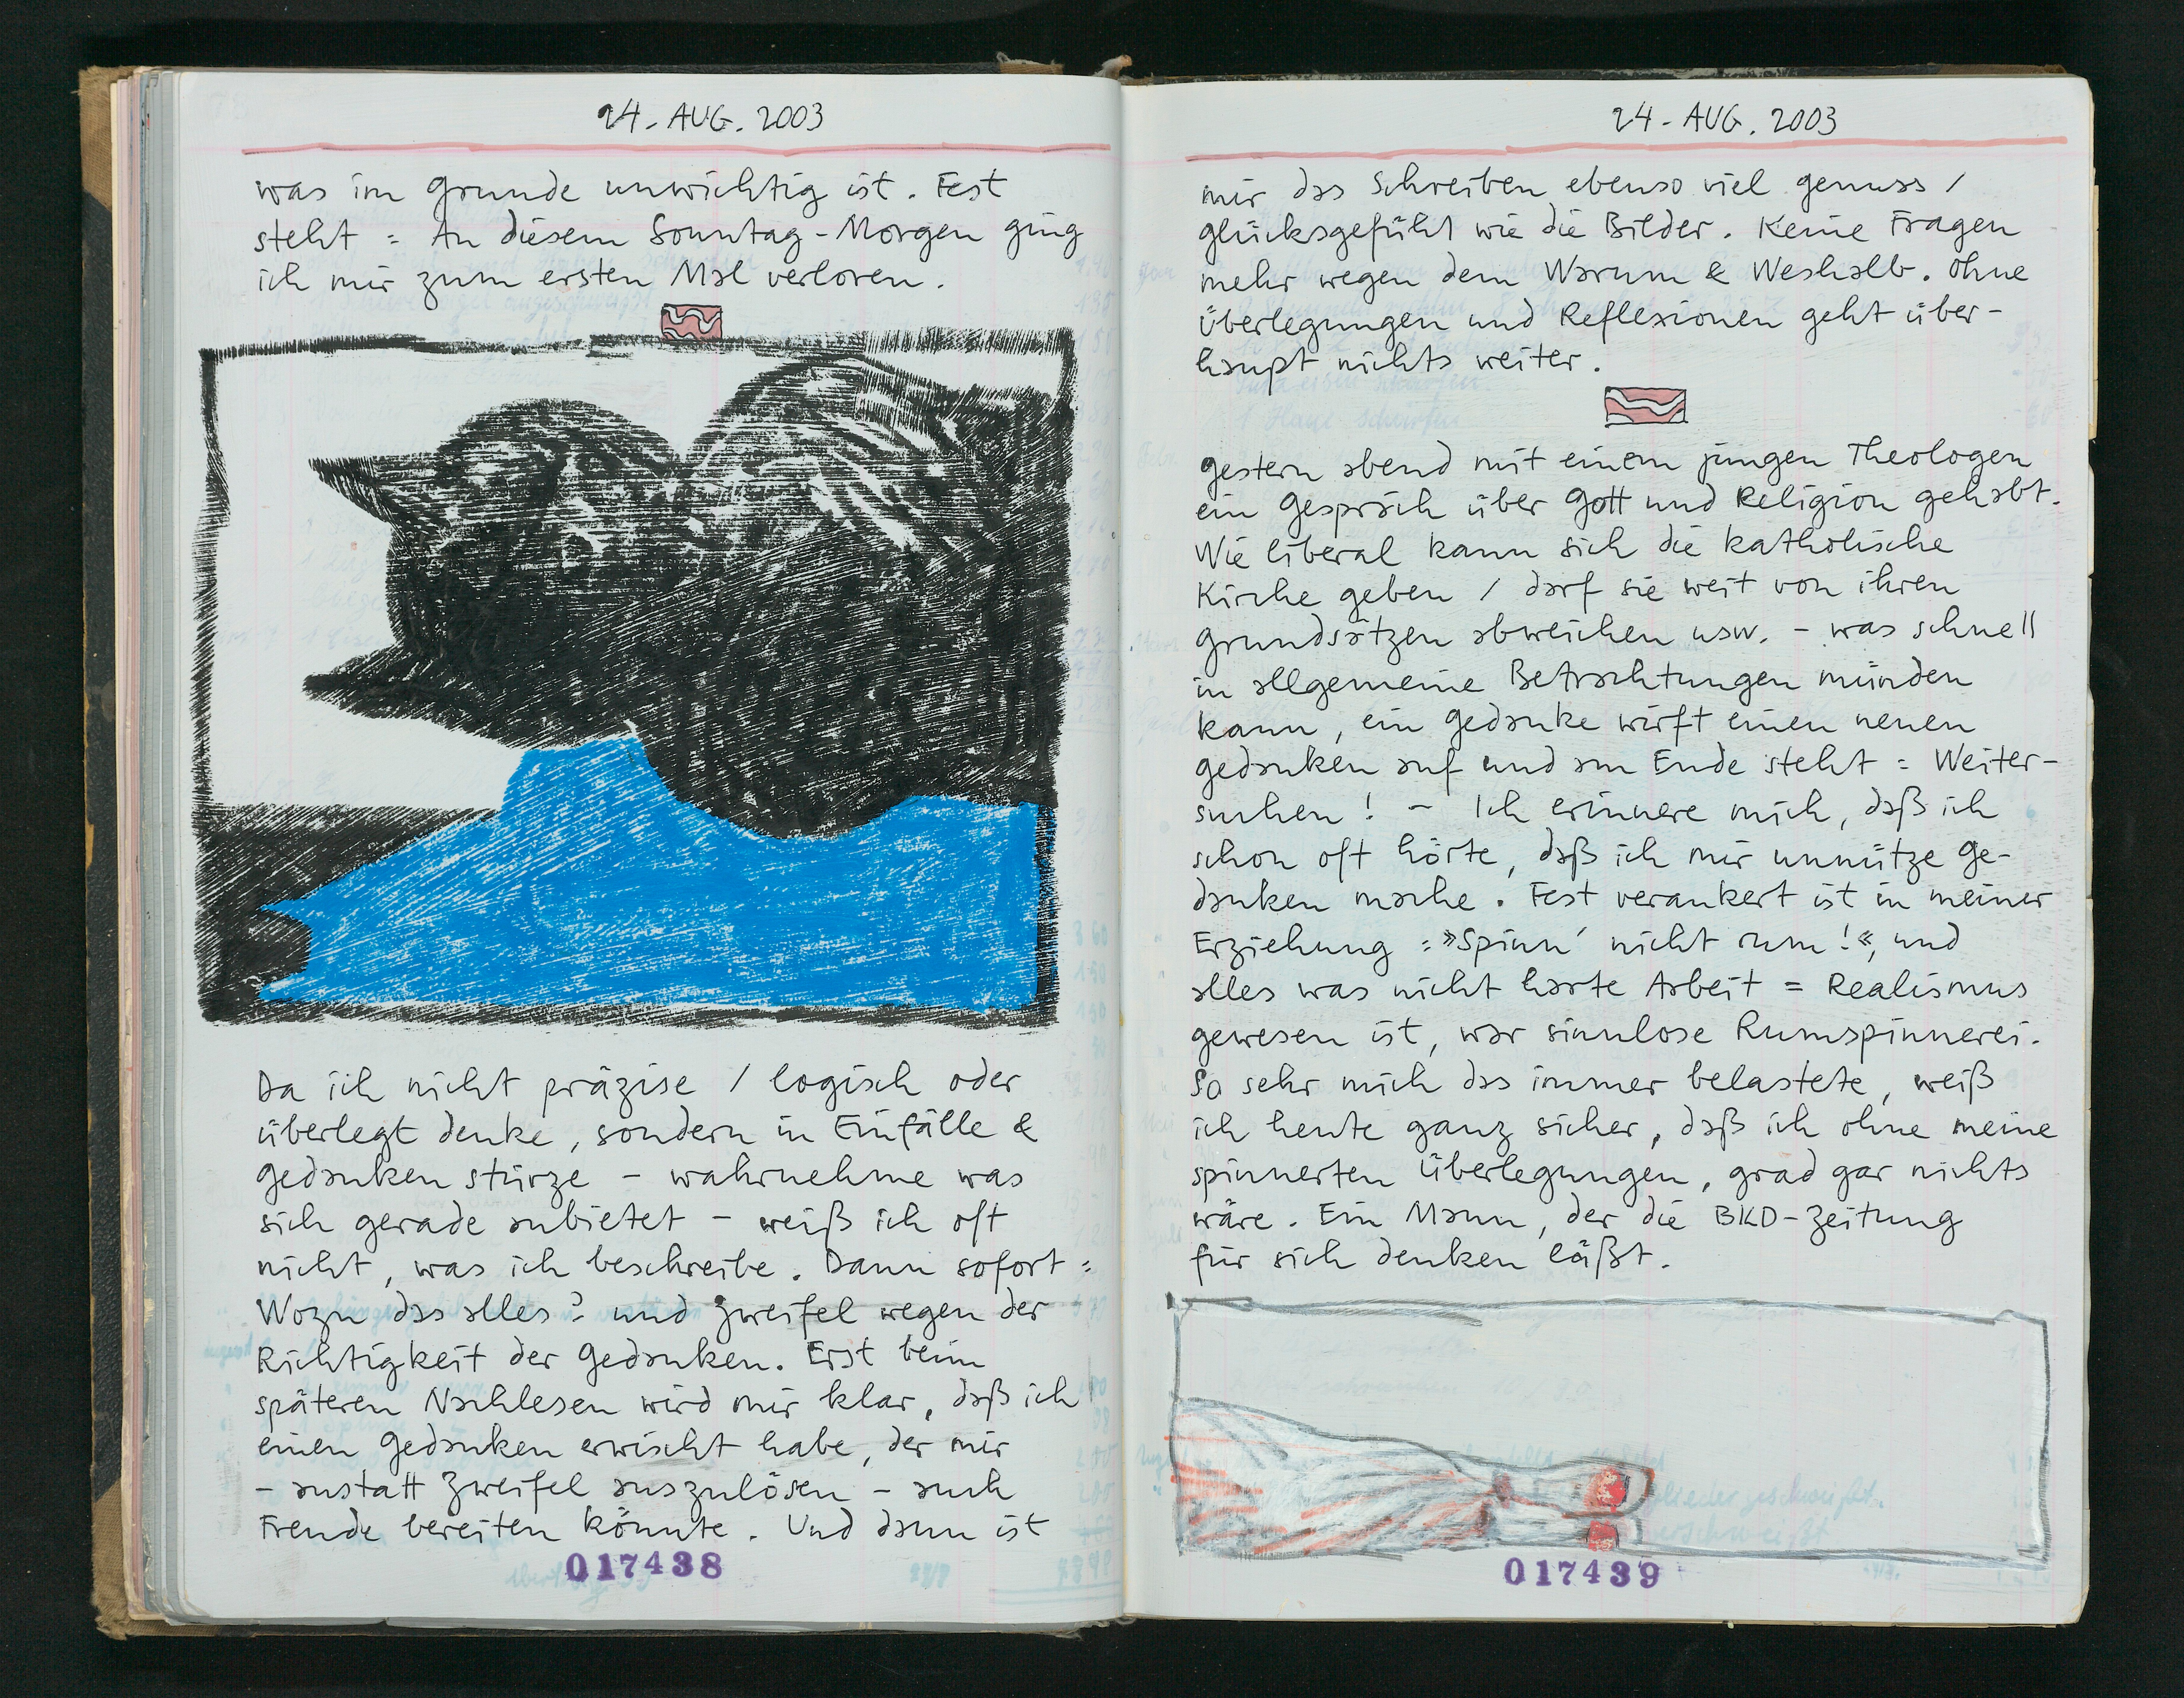 24. AUG. 2003
was im Grunde unwichtig ist. Fest
steht = An diesem Sonntag-Morgen ging
ich mir zum ersten Mal verloren.
Da ich nicht präzise / logisch oder
überlegt denke, sondern in Einfälle &
Gedanken stürze – wahrnehme was
sich gerade anbietet – weiß ich oft
nicht, was ich beschreibe. Dann sofort =
Wozu das alles? und Zweifel wegen der
Richtigkeit der Gedanken. Erst beim
späteren Nachlesen wird mir klar, daß ich
einen Gedanken erwischt habe, der mir
– anstatt Zweifel auszulösen – auch
Freude bereiten könnte. Und dann ist
017438
24. AUG. 2003
mir das Schreiben ebenso viel Genuss /
Glücksgefühl wie die Bilder. Keine Fragen
mehr wegen dem Warum & Weshalb. Ohne
Überlegungen und Reflexionen geht über-
haupt nichts weiter.
Gestern abend mit einem jungen Theologen
ein Gespräch über Gott und Religion gehabt.
Wie liberal kann sich die katholische
Kirche geben / darf sie weit von ihren
Grundsätzen abweichen usw. – was schnell
in allgemeine Betrachtungen münden
kann, ein Gedanke wirft einen neuen
Gedanken auf und am Ende steht = Weiter-
suchen! – Ich erinnere mich, daß ich
schon oft hörte, daß ich mir unnütze Ge-
danken mache. Fest verankert ist in meiner
Erziehung = »Spinn' nicht rum!«, und
alles was nicht harte Arbeit = Realismus
gewesen ist, war sinnlose Rumspinnerei.
So sehr mich das immer belastete, weiß
ich heute ganz sicher, daß ich ohne meine
spinnerten Überlegungen, grad gar nichts
wäre. Ein Mann, der die BKD-Zeitung
für sich denken läßt.
017439